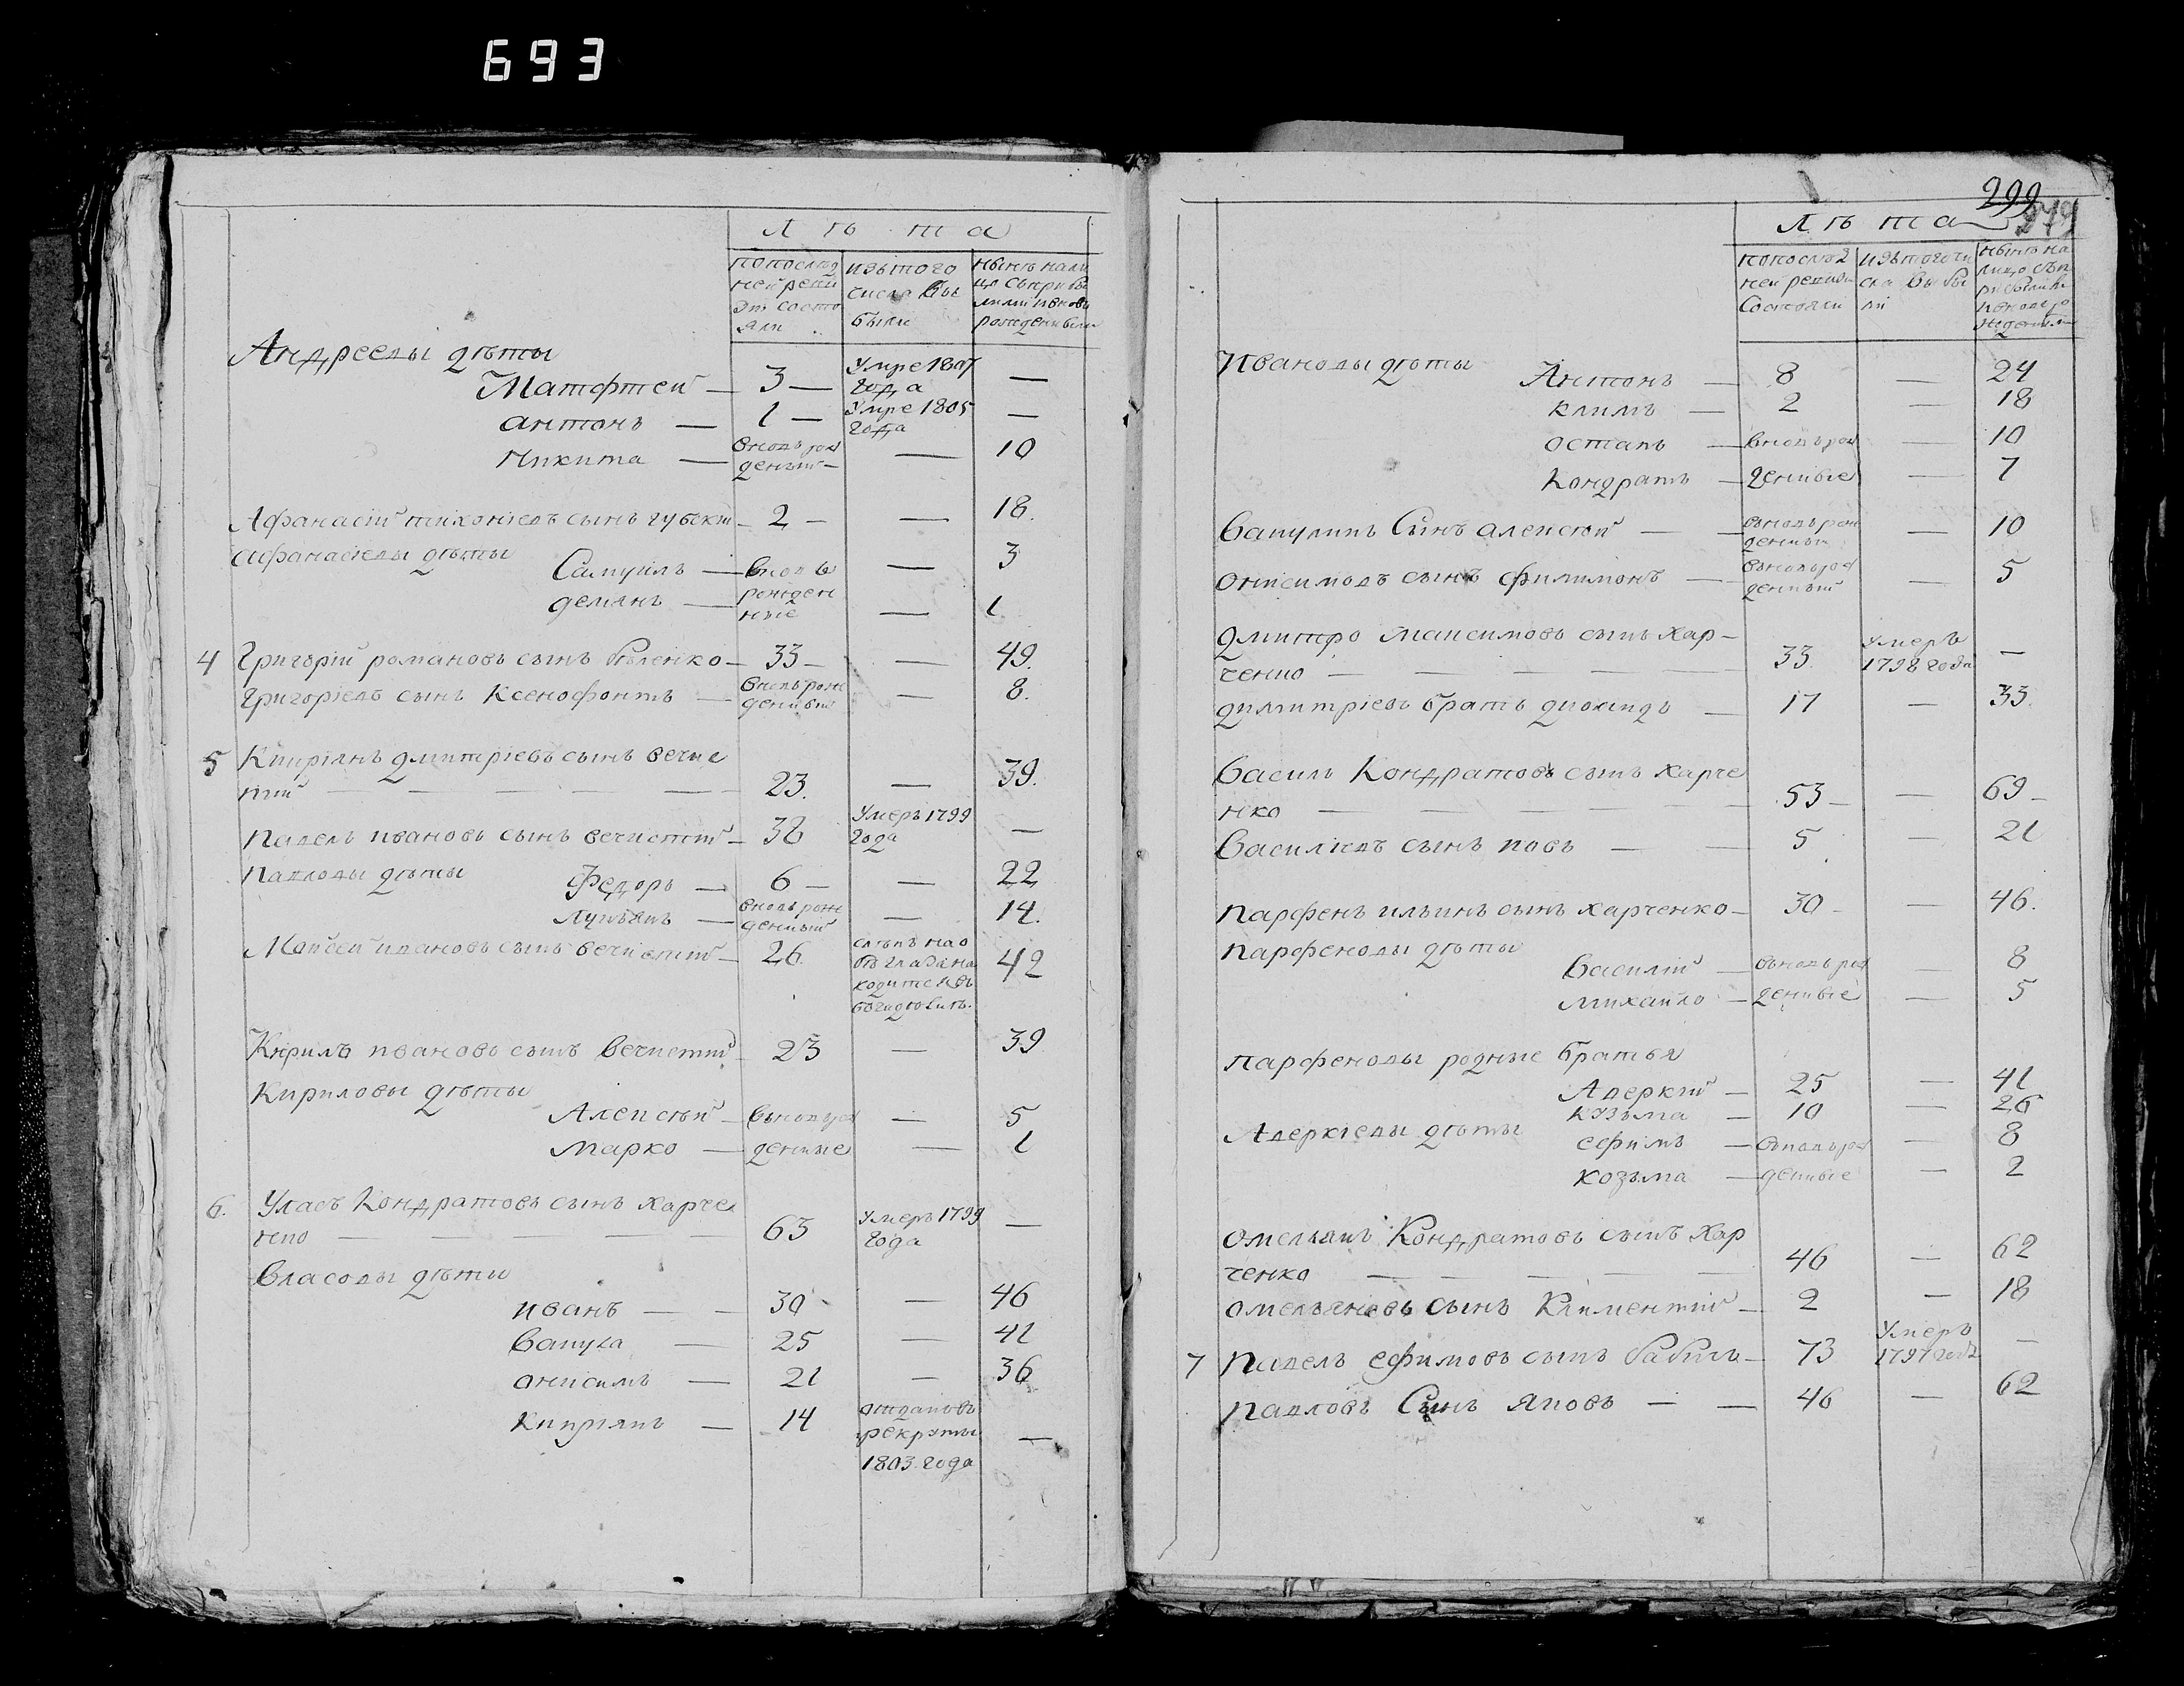 693
Лѣта
по послѣд ней ревизіи состояли
изъ того числа выбыли
нынѣ на лицо съ прибылыми и вновь рожденными
Андреевы дѣти
Матфтей — 3 — умре 1807 года —
антонъ — 1 — умре 1805 года —
Никита — вновь рожденный — — 10
Афанасій тихоніевъ сынъ губскій — 2 — — 18.
Афанасіевы дѣты Самуилъ — вновь — 3
демянъ — рожденныіе — 1
4 Григорій романовъ сынъ бѣленко — 33 — — 49.
Григоріевъ сынъ Ксенофонтъ — вновь рожденный — 8.
5 Кипріянъ дмитріевъ сынъ вечис
тій — 23. — 39.
павелъ ивановъ сынъ вечистій — 38 умеръ 1799 года —
павловы дѣты Федоръ — 6 — — 22
лукьянъ — вновь рожденный — 14.
Моисей ивановъ сынъ вечистій — 26. слѣпъ на обѣ глаза 42
Кирилъ ивановъ сынъ Вечистій 23 — 39
Кириловы дѣты
Алексѣй — вновь рож — 5
марко — денные — 1
6. Уласъ Кондратовъ сынъ харче
нко — 63 умеръ 1799 года —
Власовы дѣты
иванъ — 30 — 46
Вакула — 25 — 41
онисимъ — 21 — 36
Кипріянъ — 14 отданъ въ рекруты 1803 года —
299
279
Лѣта
по послѣд ней ревизіи состояли
изъ того числа выбыли
нынѣ на лицо съ прибылыми и вновь рожденными
Ивановы дѣты Антонъ — 8 — 24
климъ — 2 — 18
остапъ — вновь рож — 10
Кондратъ — денные — 7
Вакулинъ Сынъ алексѣй — вновь рожденный — 10
онисимовъ сынъ филимонъ — вновь рожденный — 5
дмитро максимовъ сынъ хар-
ченко — 33. умеръ 1798 года —
димитріевъ братъ діомидъ — 17 — 33.
Василь Кондратовъ сынъ харче
нко — 53 — — 69 —
Василіевъ сынъ иовъ — 5 — 21
парфенъ ильинъ сынъ харченко — 30 — — 46.
парфеновы дѣты
Василій — вновь рож — 8
михайло — денные — 5
парфеновы родные братья
Аверкій — 25 — 41
кузьма — 10 — 26
Аверкіевы дѣты ефимъ — вновь рож — 8
козьма — денные — 2
омельянъ Кондратовъ сынъ хар
ченко — 46 — 62
омельяновъ сынъ Климентій — 2 — 18
7 павелъ ефимовъ сынъ бабичъ — 73 умеръ 1797 года —
павловъ Сынъ яковъ — 46 — 62